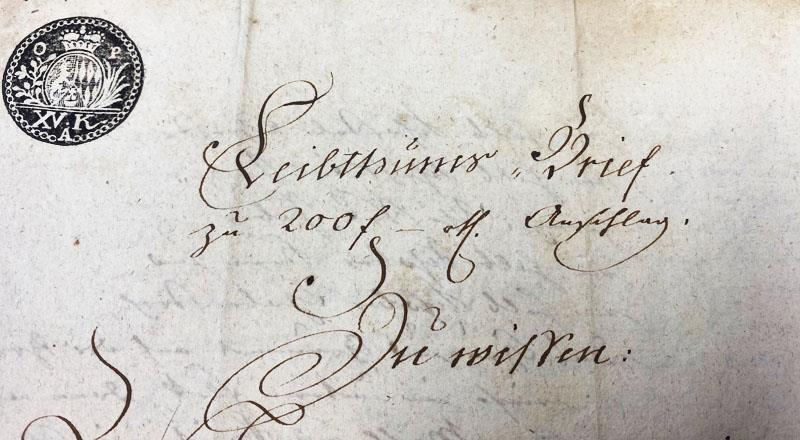 O P
XV. K
A.
Leibthums„ Brief.
zu 200 f – Anschlag.
Zu wissen: